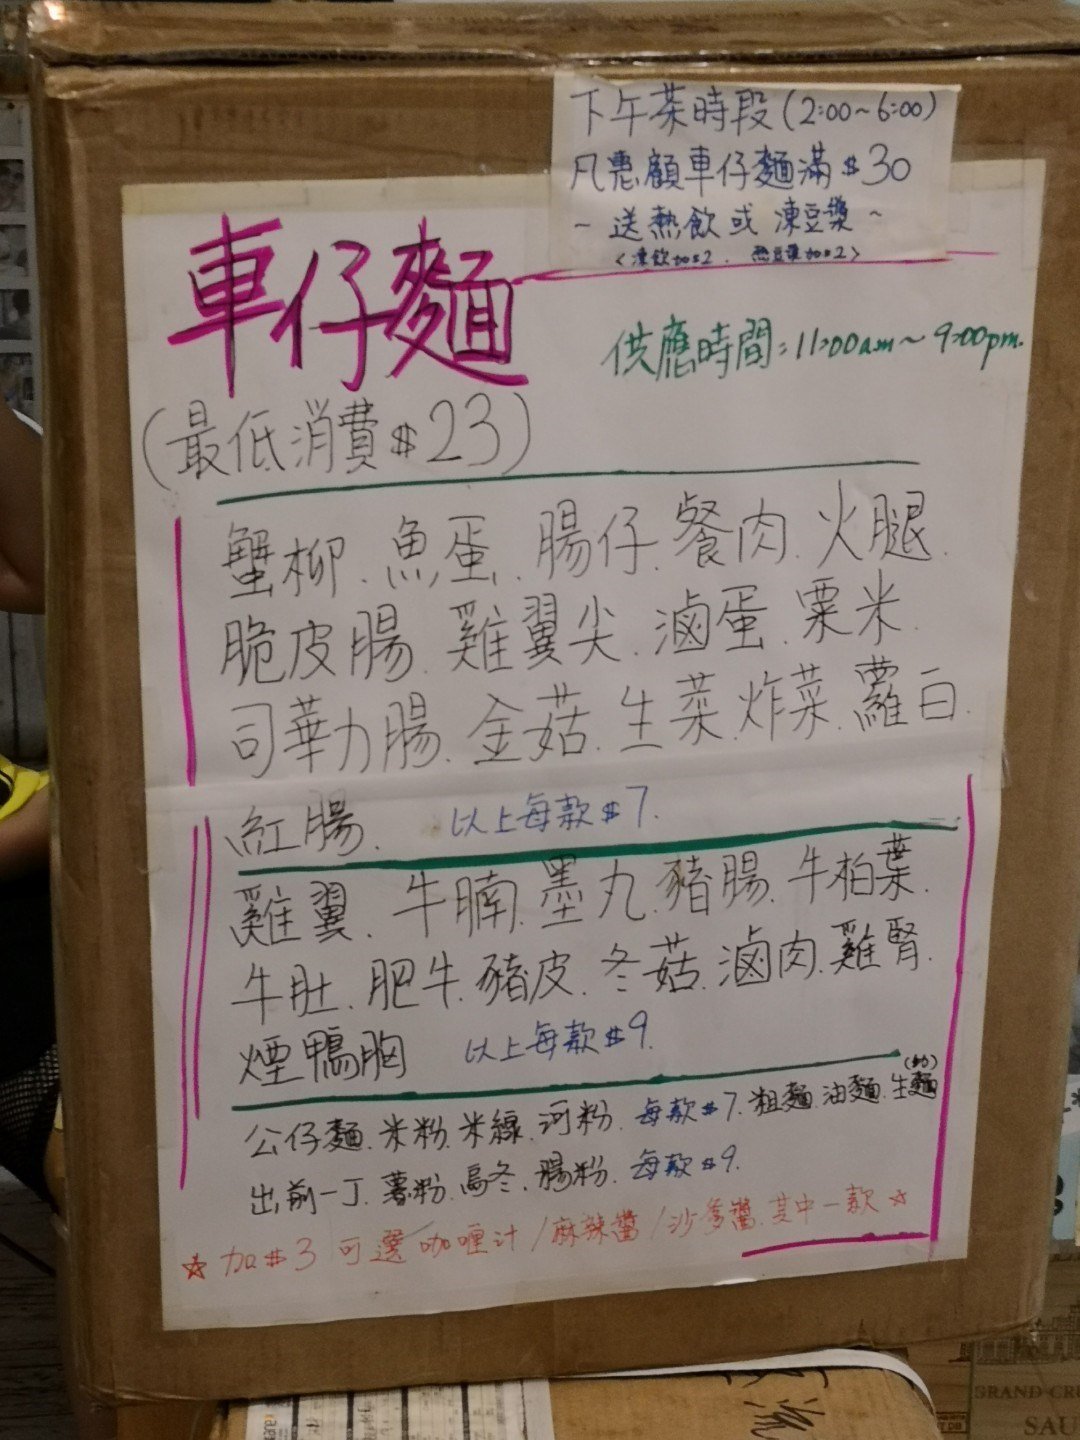 下午茶時段(2:00~6:00)
凡惠顧車仔麵滿$30
~送熱飲或凍豆漿~
<凍飲加$2. 熱豆漿加$2>
車仔麵
供應時間:11:00am~9:00pm.
(最低消費$23)
蟹柳.魚蛋.腸仔.餐肉.火腿.
脆皮腸.雞翼尖.滷蛋.粟米.
司華力腸.金菇.生菜.炸菜.蘿白.
紅腸. 以上每款$7.
雞翼.牛腩.墨丸.豬腸.牛柏葉.
牛肚.肥牛.豬皮.冬菇.滷肉.雞腎.
煙鴨胸 以上每款$9.
公仔麵.米粉.米線.河粉.每款$7.粗麵.油麵.生麵(幼)
出前一丁.薯粉.烏冬.腸粉.每款$9.
☆加$3可選咖喱汁/麻辣醬/沙爹醬.其中一款☆
GRAND CR
SAU